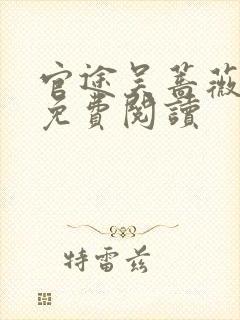 官途吴蔷薇
免費閱讀
特雷兹